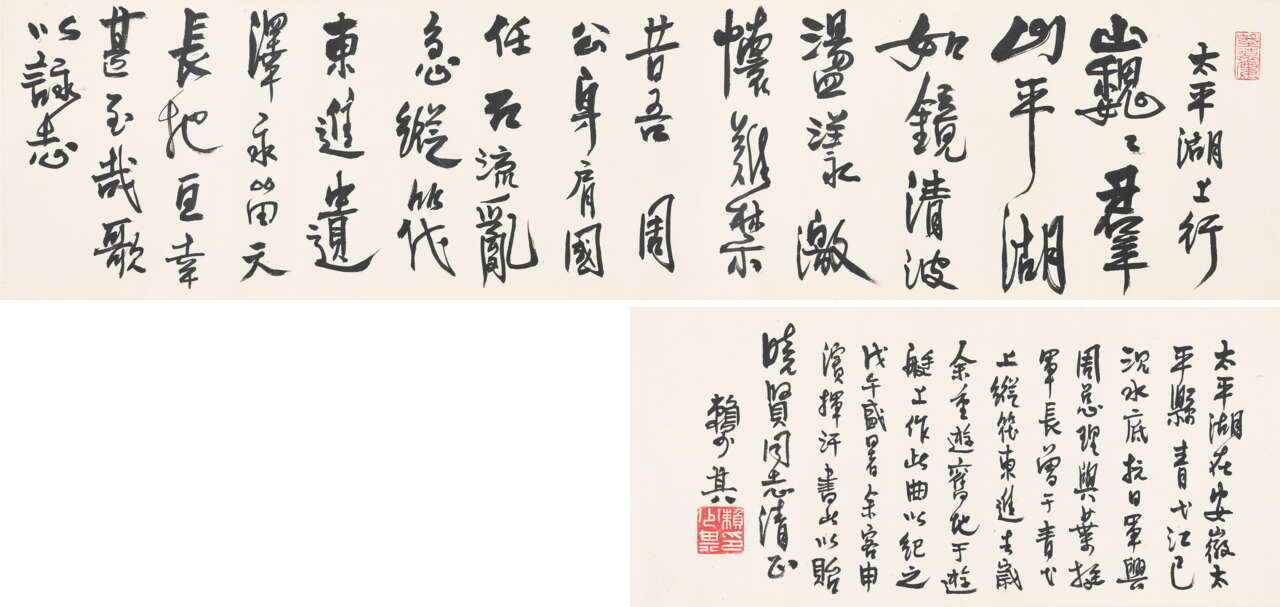 太平湖上行
山巍々羣
山平湖
如鏡清波
盪漾激
懷難禁
昔吾周
公身肩國
任石流亂
急縱筏
東進遺
澤永留天
長地亘幸
甚至哉歌
以詠志
太平湖在安徽太
平縣青弋江已
沉水底抗日軍興
周总理與葉挺
軍長曾于青弋
上縱筏東進去歲
余重遊舊地于遊
艇上作此曲以紀之
戊午盛暑余客申
濱揮汗書此以貽
曉賢同志清正
賴少其